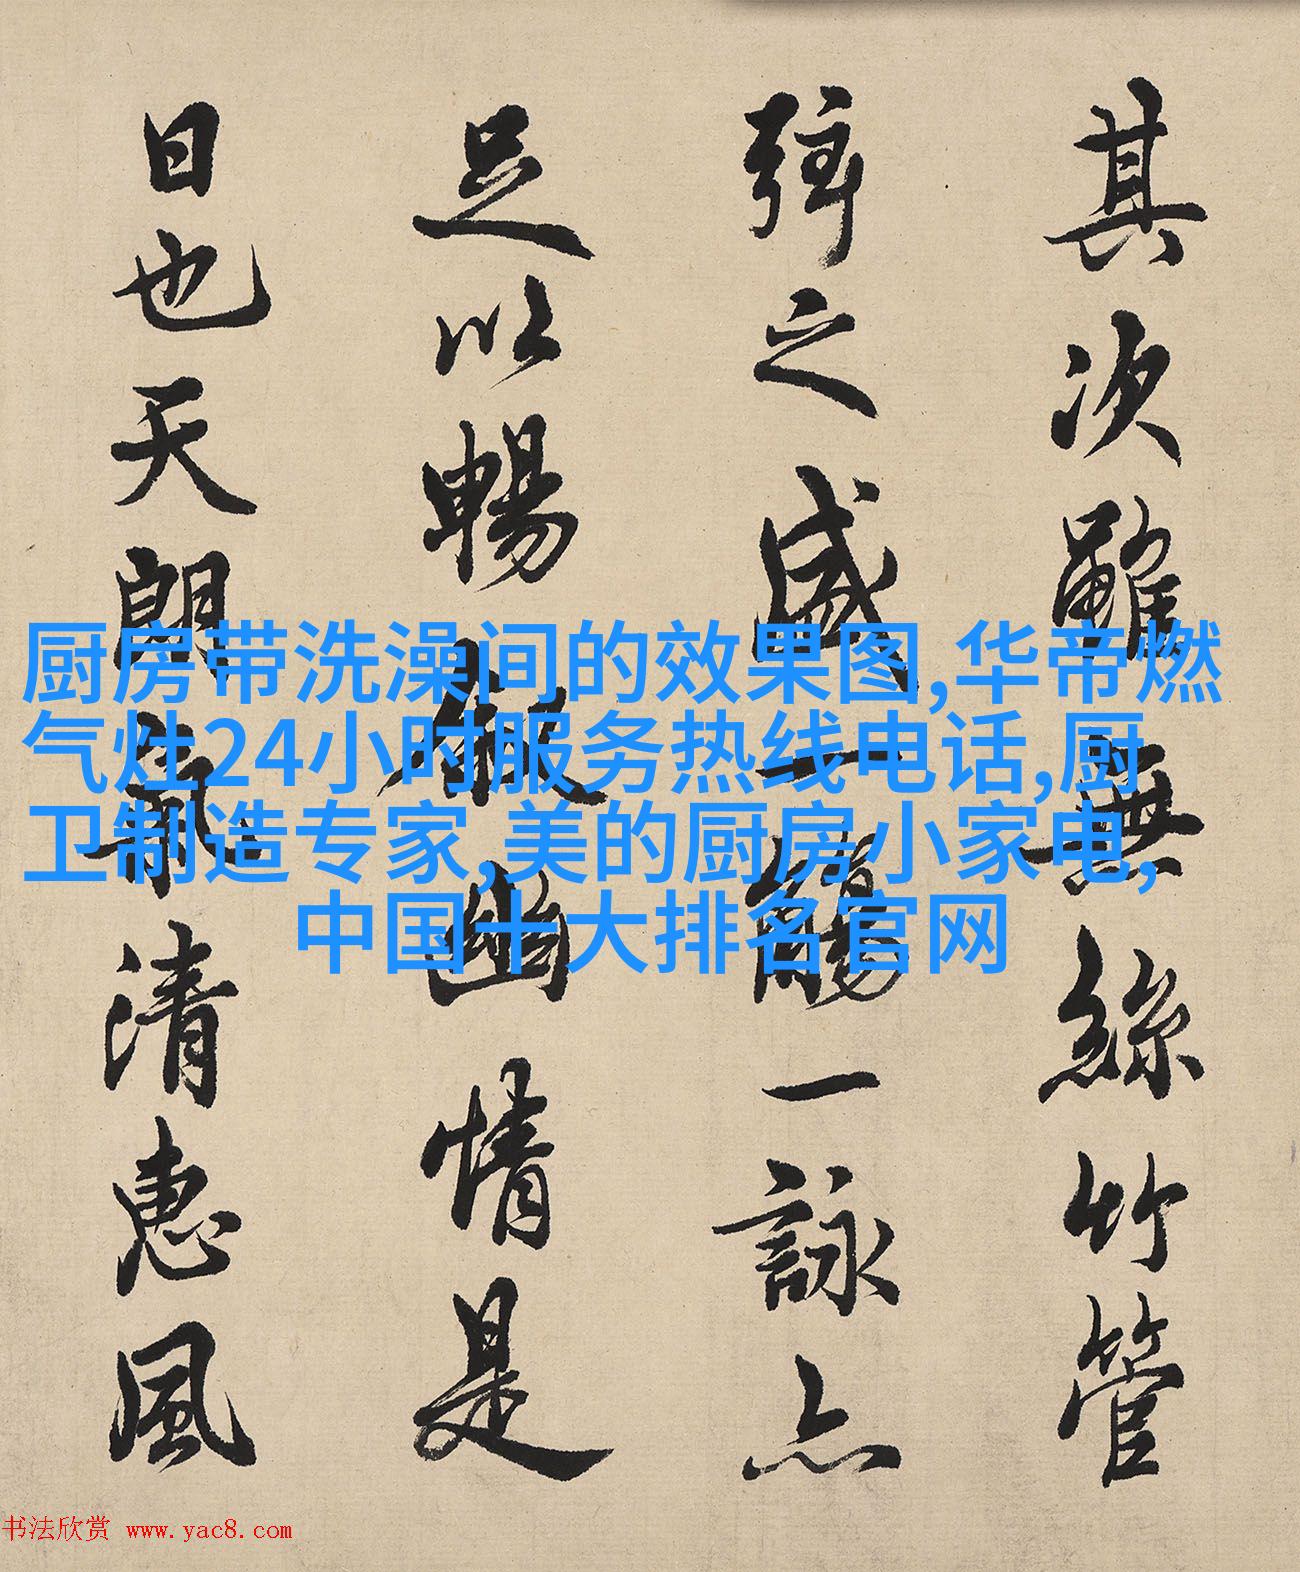 其次雖無絲竹管
弦之盛一觴一詠亦
足以暢敘幽情是
日也天朗氣清惠風
厨房带洗澡间的效果图,华帝燃
气灶24小时服务热线电话,厨
卫制造专家,美的厨房小家电,
中国十大排名官网
书法欣赏 www.yac8.com